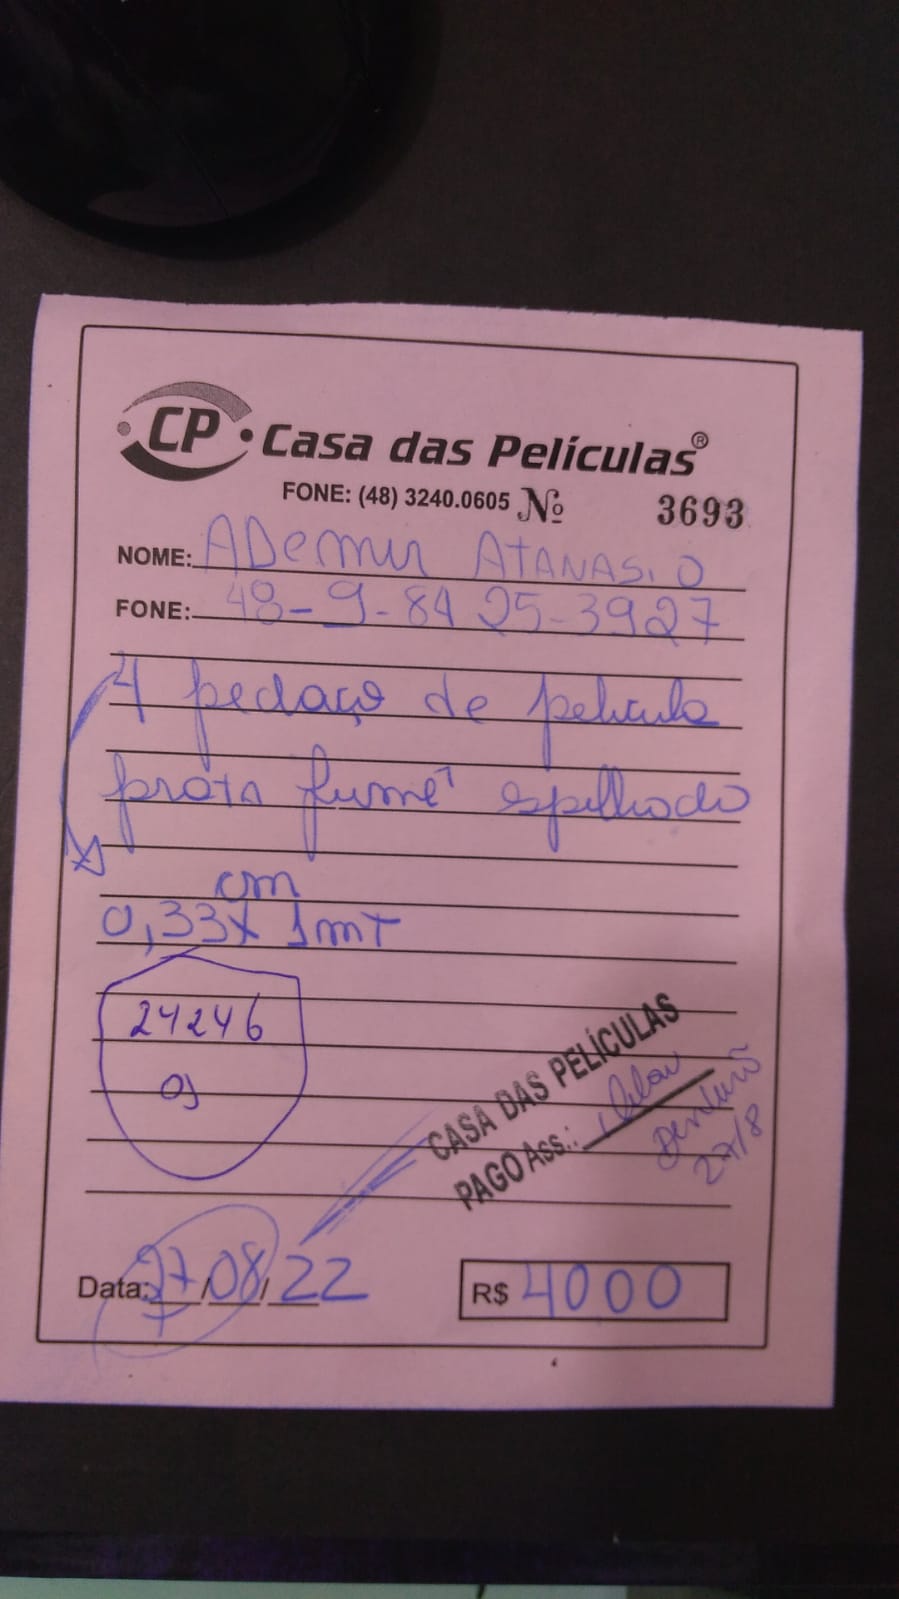 CP Casa das Películas®
FONE: (48) 3240.0605 Nº 3693
NOME: ADemir ATANASIO
FONE: 48-9-8425-3927
4 pedaço de pelicula
prata fumê espelhado
cm
0,33x 1mT
24246
OS
CASA DAS PELÍCULAS
PAGO Ass.:
Dinheiro
27/8
Data: 27/08/22
R$ 4000